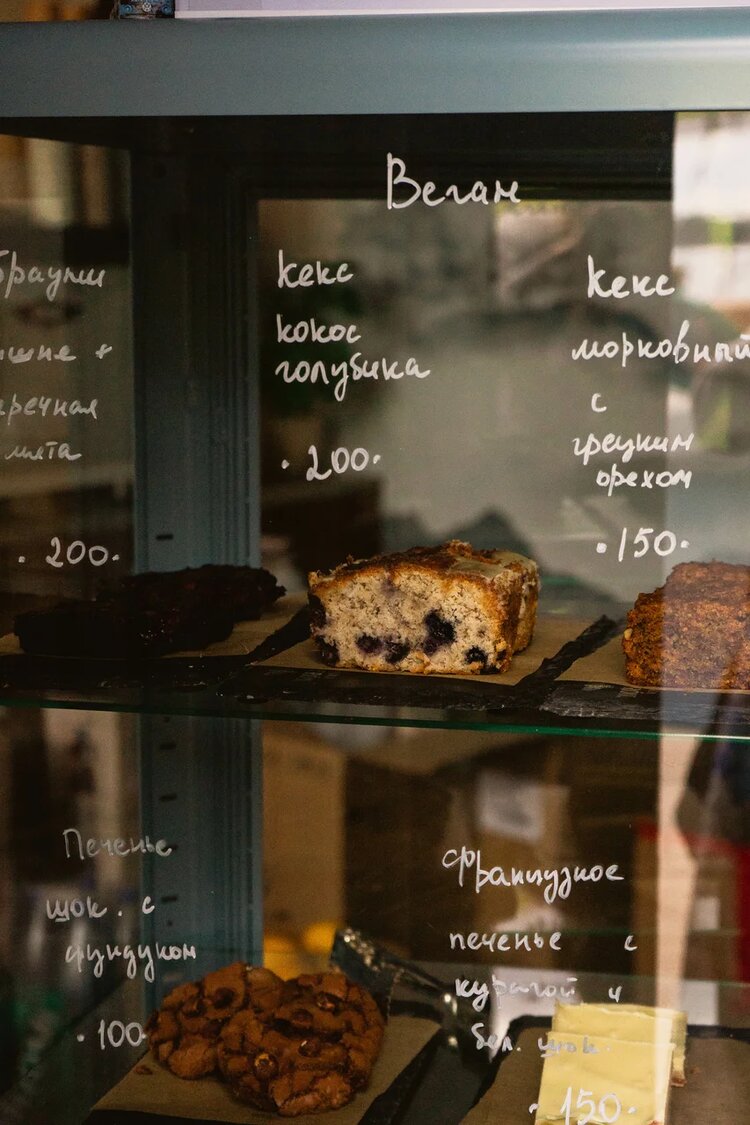 Веган
брауни
вишне +
перечная
мята
·200·
Кекс
кокос
голубика
·200·
Кекс
морковный
с
грецким
орехом
·150·
Печенье
шок. с
фундуком
·100·
Французкое
печенье с
курагой и
бел. шок.
·150·